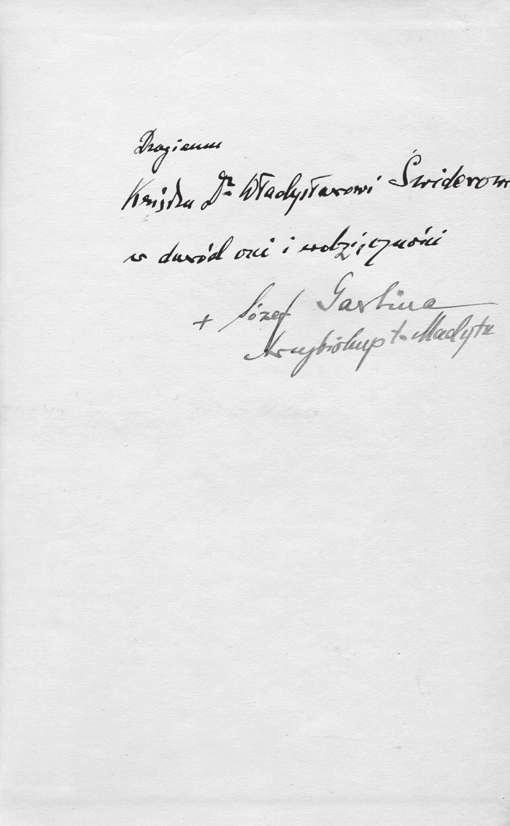 Drogiemu
Księdzu Dr Władysławowi Świderow
w dowód czci i wdzięczności
+ Józef Gawlina
Arcybiskup t. Madytu